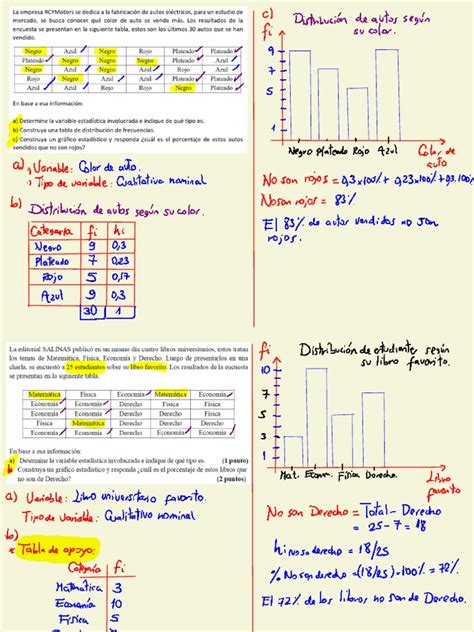 La empresa RCYMotors se dedica a la fabricación de autos eléctricos, para un estudio de
mercado, se busca conocer qué color de auto se vende más. Los resultados de la
encuesta se presentan en la siguiente tabla, estos son los últimos 30 autos que se han
vendido.
En base a esa información:
a) Determine la variable estadística involucrada e indique de qué tipo es.
b) Construya una tabla de distribución de frecuencias.
c) Construya un gráfico estadístico y responda ¿cuál es el porcentaje de estos autos
vendidos que no son rojos?
a) Variable: Color de auto.
Tipo de variable: Cualitativa nominal
b) Distribución de autos según su color.
Categoría fi hi
Negro 9 0,3
Plateado 7 0,23
Rojo 5 0,17
Azul 9 0,3
30 1
c) Distribución de autos según
su color.
fi
9
7
5
3
1
Negro Plateado Rojo Azul
Color de
auto
No son rojos = 83%
El 83% de autos vendidos no son
rojos.
La editorial SALINAS publicó en un mismo día cuatro libros universitarios, estos tratan
los temas de Matemática, Física, Economía y Derecho. Luego de presentarlos en una
charla, se encuestó a 25 estudiantes sobre su libro favorito. Los resultados de la encuesta
se presentan en la siguiente tabla.
Matemática Física Economía Matemática Economía
Economía Economía Derecho Física Física
Economía Derecho Derecho Economía Derecho
Física Matemática Derecho Economía Derecho
Economía Economía Economía Física Derecho
En base a esa información:
a) Determine la variable estadística involucrada e indique de qué tipo es. (1 punto)
b) Construya un gráfico estadístico y responda ¿cuál es el porcentaje de estos libros que
no son de Derecho? (2 puntos)
a) Variable: Libro universitario favorito.
Tipo de variable: Cualitativa nominal
b)
* Tabla de apoyo:
Categoría fi
Matemática 3
Economía 10
Física 5
fi
Distribución de estudiante según
su libro favorito.
10
7
5
3
1
Mat. Econom. Física Derecho.
Libro
favorito
No son Derecho = Total - Derecho
= 25 - 7 = 18
hi No son derecho = 18/25
% No son derecho = (18/25)·100% = 72%.
El 72% de los libros no son de Derecho.